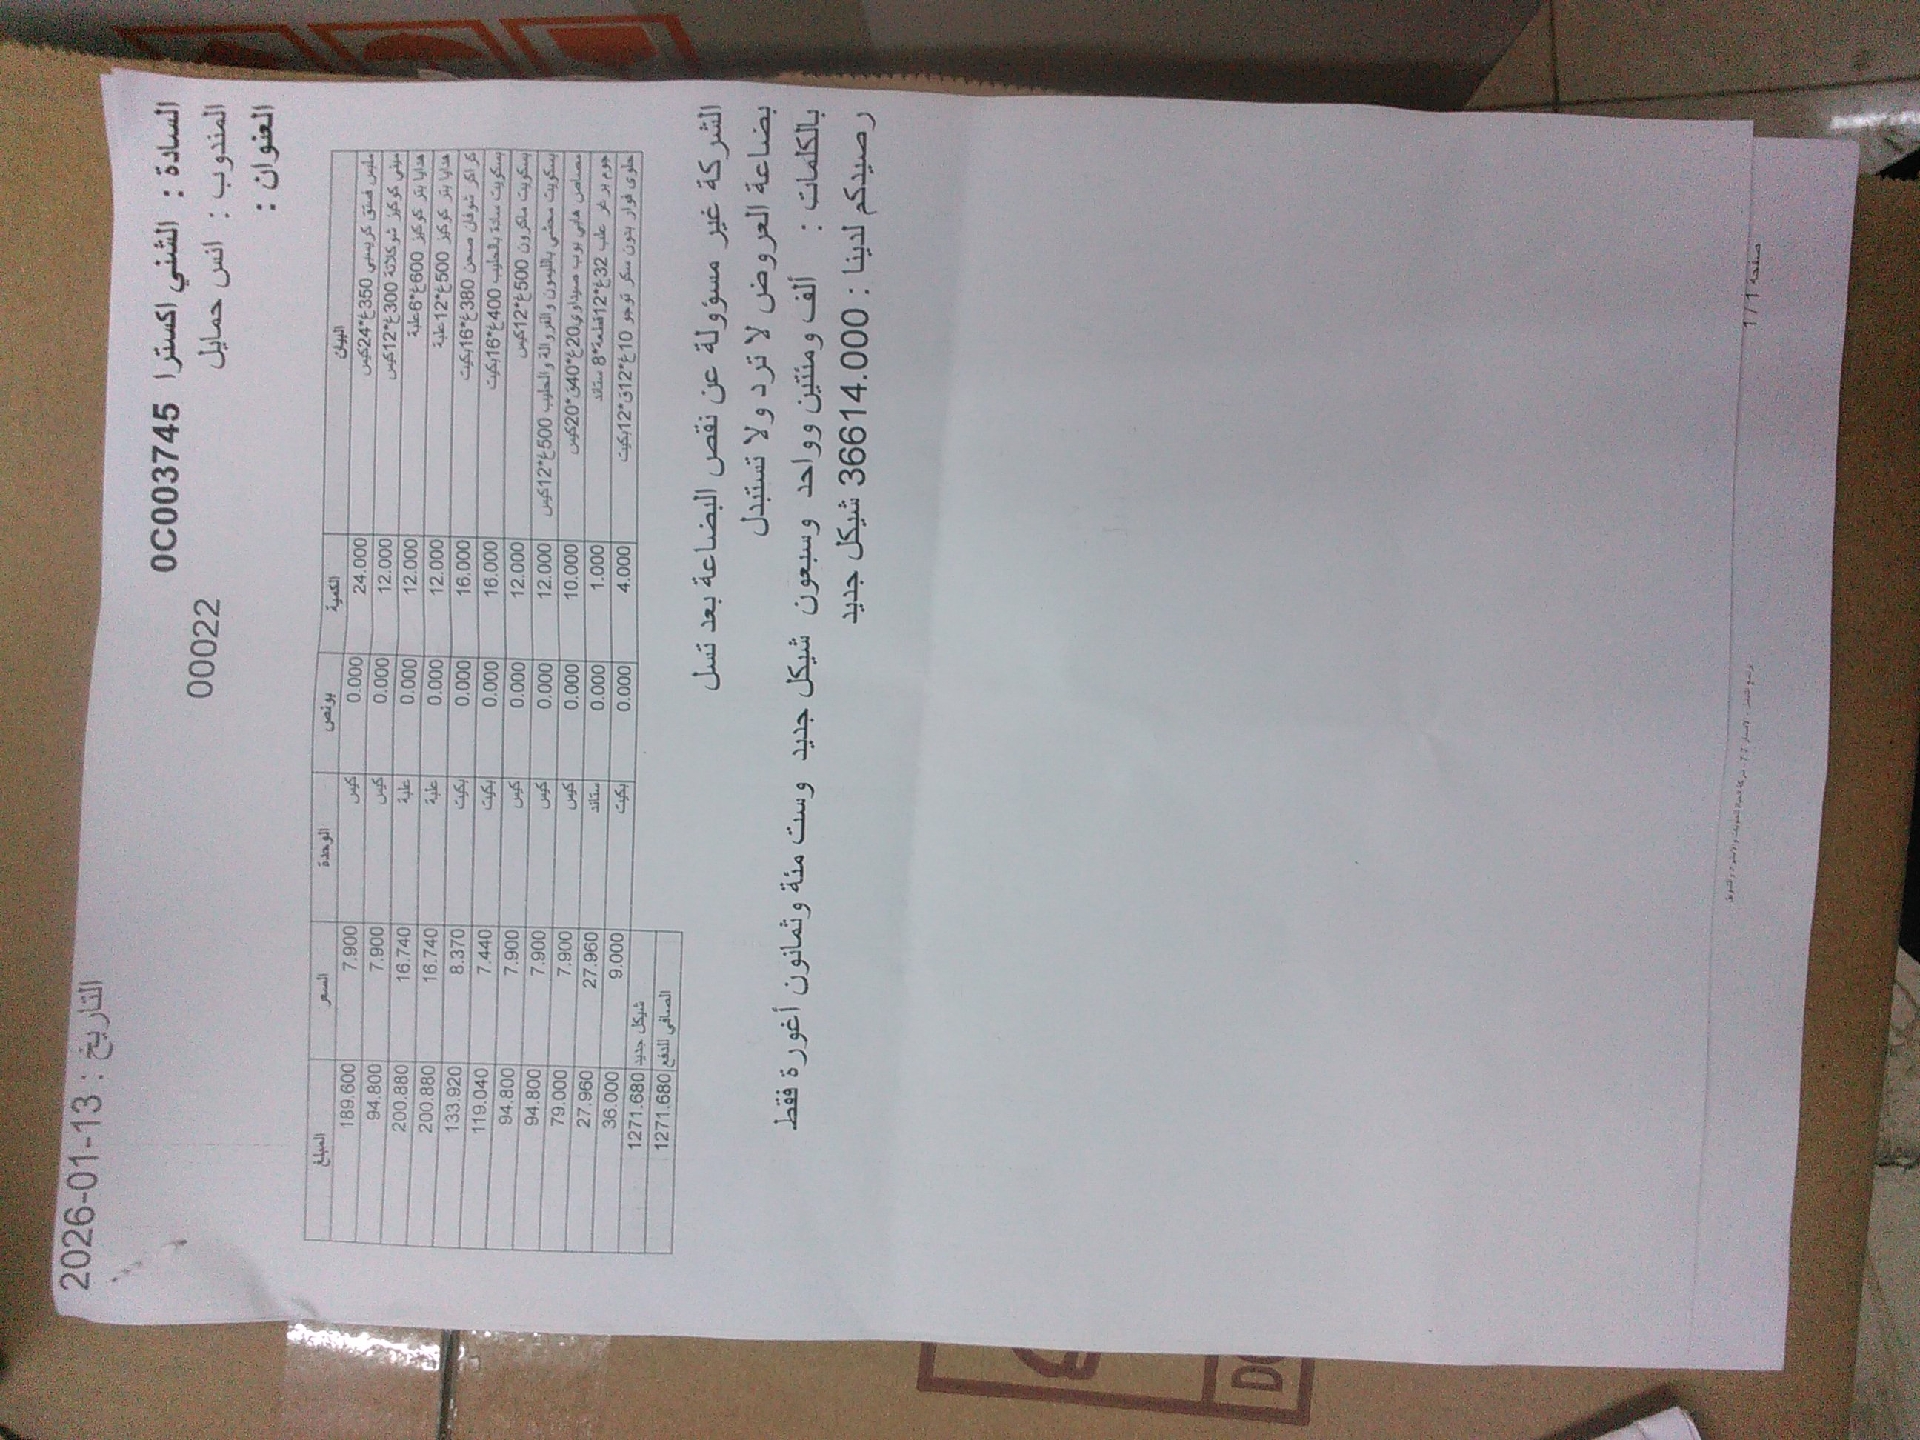 التاريخ : 2026-01-13
السادة : الشني اكسترا 0C003745
المندوب : انس حمايل 00022
العنوان :
البيان الكمية بونص الوحدة السعر المبلغ
ملبس فستق كريسبي 350غ*24كيس 24.000 0.000 كيس 7.900 189.600
ميني كوكيز شوكلاتة 300غ*12كيس 12.000 0.000 كيس 7.900 94.800
هدايا بتر كوكيز 600غ*6علبة 12.000 0.000 علبة 16.740 200.880
هدايا بتر كوكيز 500غ*12علبة 12.000 0.000 علبة 16.740 200.880
كراكر شوفان صحي 380غ*16بكيت 16.000 0.000 بكيت 8.370 133.920
بسكويت سادة بالحليب 400غ*16بكيت 16.000 0.000 بكيت 7.440 119.040
بسكويت ماكرون 500غ*12كيس 12.000 0.000 كيس 7.900 94.800
بسكويت محشي بالليمون والفراولة والحليب 500غ*12كيس 12.000 0.000 كيس 7.900 94.800
مصاص هابي بوب صيداوي 20غ*40ق*20كيس 10.000 0.000 كيس 7.900 79.000
جوم برغر علب 32غ*12قطعة*8 ستاند 1.000 0.000 ستاند 27.960 27.960
حلوى فوار بدون سكر توجو 10غ*12ق*12بكيت 4.000 0.000 بكيت 9.000 36.000
شيكل جديد 1271.680
الصافي للدفع 1271.680
الشركة غير مسؤولة عن نقص البضاعة بعد تسل
بضاعة العروض لا ترد ولا تستبدل
بالكلمات : ألف ومئتين وواحد وسبعون شيكل جديد وست مئة وثمانون أغورة فقط
رصيدكم لدينا : 36614.000 شيكل جديد
صفحة 1 / 1